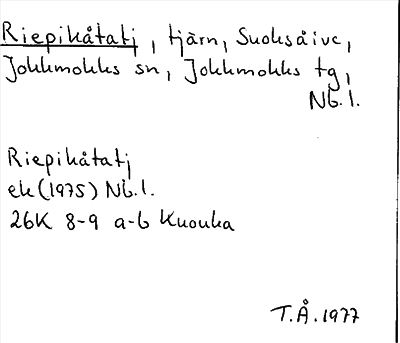 Riepikåtatj, tjärn, Suoksåive,
Jokkmokks sn, Jokkmokks tg,
Nb.l.
Riepikåtatj
ek (1975) Nb.l.
26K 8-9 a-b Kuouka
T.Å. 1977